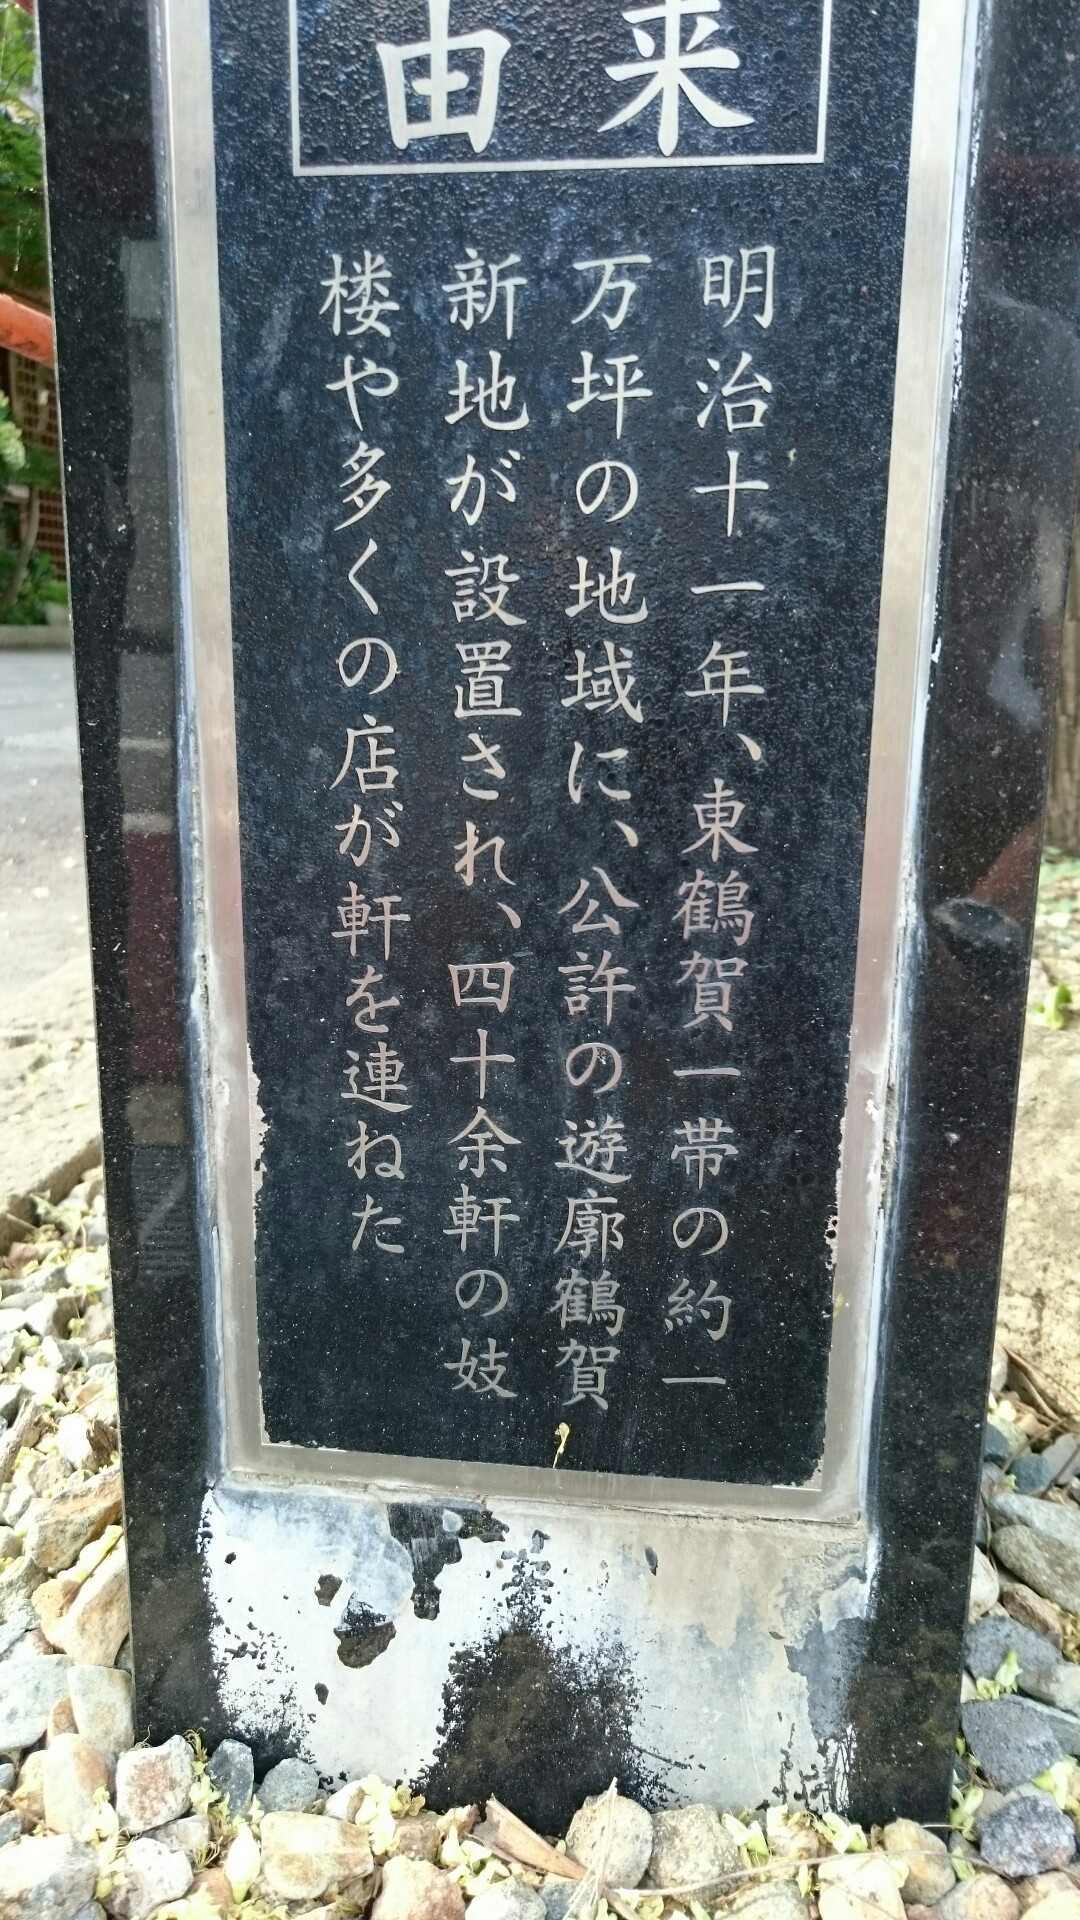 由来
明治十一年、東鶴賀一帯の約一
万坪の地域に、公許の遊廓鶴賀
新地が設置され、四十余軒の妓
楼や多くの店が軒を連ねた